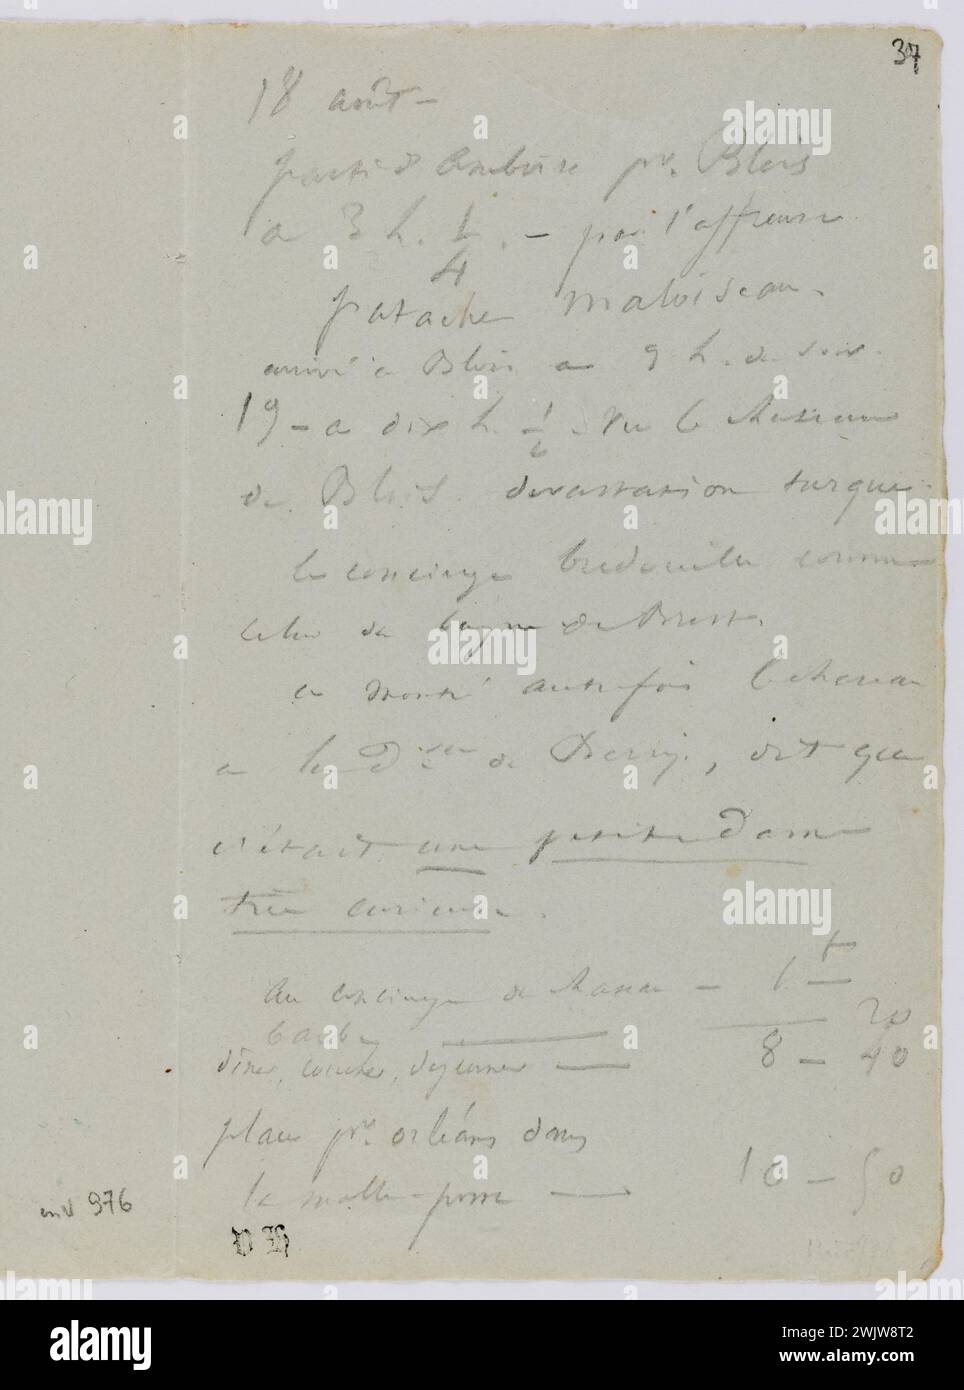 37
18 août –
parti d'Amboise pr. Blois
à 3 h. 1/4. – par l'affreuse
patache Maloiseau.
arrivé à Blois à 9 h. du soir.
19 – à dix h. 1/2 vu le château
de Blois. dévastation turque.
le concierge bredouille comme
celui du bagne de Brest.
a montré autrefois le château
à la d.sse de Berry, dit que
c'était une petite dame
très curieuse.
au concierge du château – 1 f –
20
dîner, coucher, déjeuner — 8 – 40
place pr. orléans dans
la malle-poste — 10 – 50
inv 976
VH
alamy
Image ID: 2WJW8T2
www.alamy.com